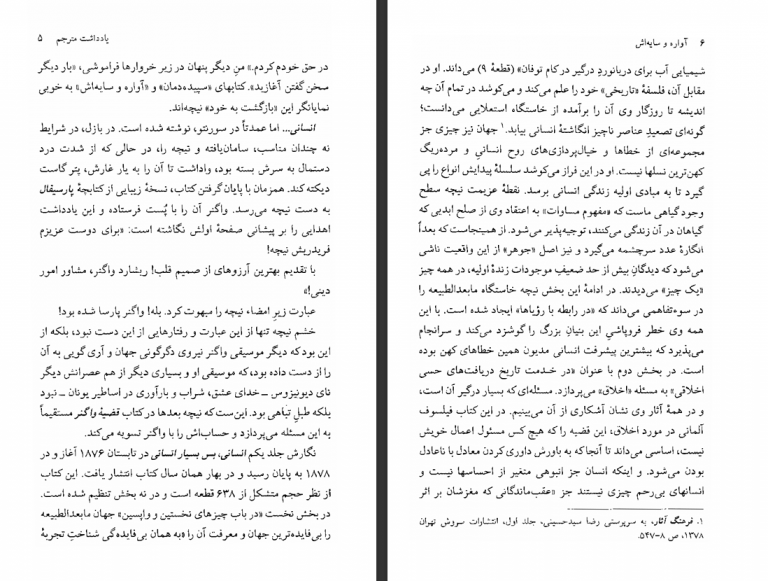 یادداشت مترجم ۵
در حق خودم کردم.» منِ دیگر پنهان در زیر خروارها فراموشی، «بار دیگر
سخن گفتن آغازید». کتابهای «سپیده‌دمان» و «آواره و سایه‌اش» به خوبی
نمایانگر این «بازگشت به خود» نیچه‌اند.
انسانی... اما عمدتاً در سورنتو، نوشته شده است. در بازل، در شرایط
نه چندان مناسب، سامان‌یافته و نیچه را، در حالی که از شدت درد
دستمال به سرش بسته بود، واداشت تا آن را به یار غارش، پتر گاست
دیکته کند. همزمان با پایان گرفتن کتاب، نسخهٔ زیبایی از کتابچهٔ پارسیفال
به دست نیچه می‌رسد. واگنر آن را با پُست فرستاده و این یادداشت
اهدایی را بر پیشانی صفحهٔ اولش نگاشته است: «برای دوست عزیزم
فریدریش نیچه!
با تقدیم بهترین آرزوهای از صمیم قلب! ریشارد واگنر، مشاور امور
دینی!»
عبارت زیرِ امضا، نیچه را مبهوت کرد. بله! واگنر پارسا شده بود!
خشم نیچه تنها از این عبارت و رفتارهایی از این دست نبود، بلکه از
این بود که دیگر موسیقی واگنر نیروی دگرگونی جهان و آری گویی به آن
را از دست داده بود، که موسیقی او و بسیاری دیگر از هم عصرانش دیگر
نای دیونیزوس ــ خدای عشق، شراب و بارآوری در اساطیر یونان ــ نبود
بلکه طبل تباهی بود. این‌ست که نیچه بعدها در کتاب قضیهٔ واگنر مستقیماً
به این مسئله می‌پردازد و حساب‌اش را با واگنر تسویه می‌کند.
نگارش جلد یکم انسانی، بس بسیار انسانی در تابستان ۱۸۷۶ آغاز و در
۱۸۷۸ به پایان رسید و در بهار همان سال کتاب انتشار یافت. این کتاب
از نظر حجم متشکل از ۶۳۸ قطعه است و در نه بخش تنظیم شده است.
در بخش نخست «در باب چیزهای نخستین و واپسین» جهان مابعدالطبیعه
را بی‌فایده‌ترین جهان و معرفت آن را «به همان بی‌فایدگی شناختِ تجربهٔ
۶ آواره و سایه‌اش
شیمیایی آب برای دریانوردِ درگیر در کام توفان» (قطعهٔ ۹) می‌داند. او در
مقابل آن، فلسفهٔ «تاریخی» خود را علم می‌کند و می‌کوشد در تمام آن چه
اندیشه تا روزگار وی آن را برآمده از خاستگاه استعلایی می‌دانست؛
گونه‌ای تصعیدِ عناصر ناچیز انگاشتهٔ انسانی بیابد.۱ جهان نیز چیزی جز
مجموعه‌ای از خطاها و خیال‌پردازی‌های روح انسانی و مرده‌ریگ
کهن‌ترین نسلها نیست. او در این فراز می‌کوشد سلسلهٔ پیدایش انواع را پی
گیرد تا به مبادی اولیه زندگی انسانی برسد. نقطهٔ عزیمت نیچه سطح
وجود گیاهی ماست که «مفهوم مساوات» به اعتقاد وی از صلح ابدیی که
گیاهان در آن زندگی می‌کنند، توجیه‌پذیر می‌شود. از همینجاست که بعداً
انگارهٔ عدد سرچشمه می‌گیرد و نیز اصل «جوهر» از این واقعیت ناشی
می‌شود که دیدگانِ بیش از حد ضعیفِ موجودات زندهٔ اولیه، در همه چیز
«یک چیز» می‌دیدند. در ادامهٔ این بخش نیچه خاستگاه مابعدالطبیعه را
در سوءتفاهمی می‌داند که «در رابطه با رؤیاها» ایجاد شده است. با این
همه وی خطر فروپاشیِ این بنیانِ بزرگ را گوشزد می‌کند و سرانجام
می‌پذیرد که بیشترین پیشرفت انسانی مدیون همین خطاهای کهن بوده
است. در بخش دوم با عنوان «در خدمت تاریخ دریافت‌های حسی
اخلاقی» به مسئله «اخلاق» می‌پردازد. مسئله‌ای که بسیار درگیر آن است،
و در همهٔ آثار وی نشان آشکاری از آن می‌بینیم. در این کتاب فیلسوف
آلمانی در مورد اخلاق، این قضیه را که هیچ کس مسئول اعمال خویش
نیست، اساسی می‌داند تا آنجا که به باورش داوری کردن معادل با ناعادل
بودن می‌شود. و اینکه انسان جز انبوهی متغیر از احساسها نیست و
انسانهای بی‌رحم چیزی نیستند جز «عقب‌ماندگانی که مغزشان بر اثر
۱. فرهنگ آثار، به سرپرستی رضا سیدحسینی، جلد اول، انتشارات سروش تهران
۱۳۷۸، ص ۸-۵۴۷.